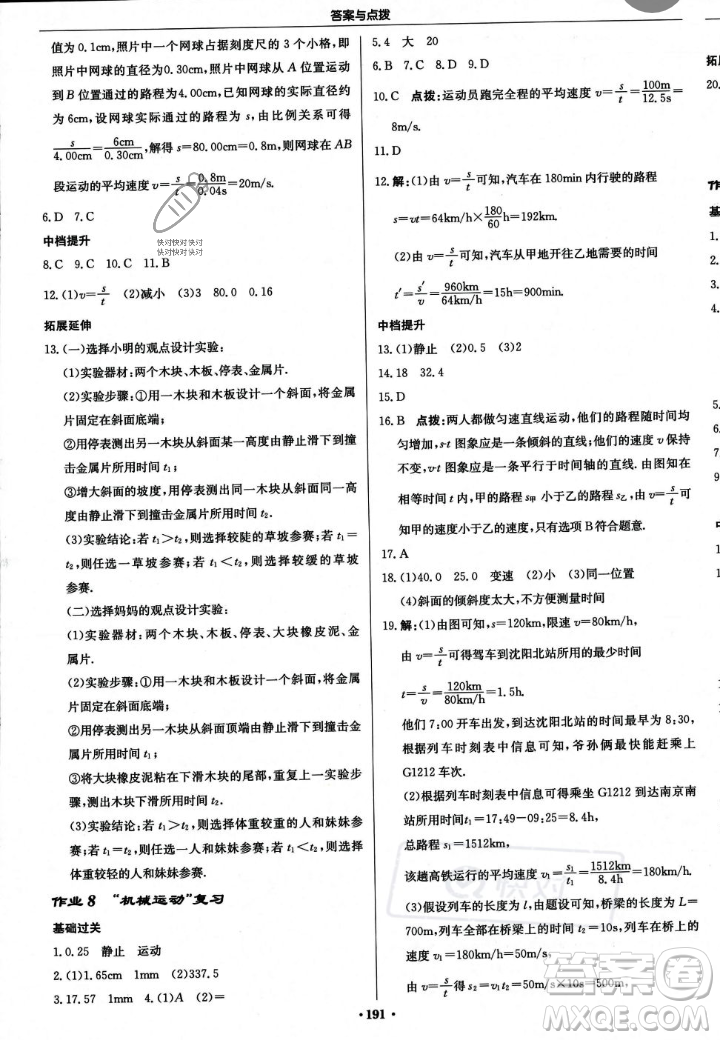 答案与点拨
值为 0.1cm,照片中一个网球占据刻度尺的 3 个小格,即
照片中网球的直径为 0.30cm,照片中网球从 A 位置运动
到 B 位置通过的路程为 4.00cm,已知网球的实际直径约
为 6cm,设网球实际通过的路程为 s,由比例关系可得
s/4.00cm=6cm/0.30cm,解得 s=80.00cm=0.8m,则网球在 AB
段运动的平均速度 v=s/t=0.8m/0.04s=20m/s.
6.D 7.C
中档提升
8.C 9.C 10.C 11.B
12.(1)v=s/t (2)减小 (3)3 80.0 0.16
拓展延伸
13.(一)选择小明的观点设计实验:
(1)实验器材:两个木块、木板、停表、金属片.
(2)实验步骤:①用一木块和木板设计一个斜面,将金属
片固定在斜面底端;
②用停表测出另一木块从斜面某一高度由静止滑下到撞
击金属片所用时间 t₁;
③增大斜面的坡度,用停表测出另一木块从同一高度由
静止滑下到撞击金属片所用时间 t₂.
(3)实验结论:若 t₁>t₂,则选择较陡的草坡参赛;若 t₁=
t₂,则任选一草坡参赛;若 t₁<t₂,则选择较缓的草坡
参赛.
(二)选择妈妈的观点设计实验:
(1)实验器材:两个木块、木板、停表、大块橡皮泥、金
属片.
(2)实验步骤:①用一木块和木板设计一个斜面,将金属
片固定在斜面底端;
②用停表测出另一木块从斜面顶端由静止滑下到撞击金
属片所用时间 t₁;
③将大块橡皮泥粘在下滑木块的尾部,重复上一实验步
骤,测出木块下滑到撞击金属片所用时间 t₂.
(3)实验结论:若 t₁>t₂,则选择体重较重的人和妹妹参
赛;若 t₁=t₂,则任选一人和妹妹参赛;若 t₁<t₂,则选择
体重较轻的人和妹妹参赛.
作业 8 “机械运动”复习
基础过关
1.0.25 静止 运动
2.(1)1.65cm 1mm (2)337.5
3.17.57 1mm 4.(1)A (2)C
5.4 大 20
6.B 7.C 8.D 9.D
10.C 点拨:运动员跑完全程的平均速度 v=s/t=100m/12.5s=
8m/s.
11.D
12.解:(1)由 v=s/t 可知,汽车在 180min 内行驶的路程
s=vt=64km/h×180/60h=192km.
(2)由 v=s/t 可知,汽车从甲地开往乙地需要的时间
t′=s′/v=960km/64km/h=15h=900min.
中档提升
13.(1)静止 (2)0.5 (3)2
14.18 32.4
15.D
16.B 点拨:两人都做匀速直线运动,他们的路程随时间均
匀增加,s-t 图象应是一条倾斜的直线;他们的速度 v 保持
不变,v-t 图象应是一条平行于时间轴的直线.由图知在
相等时间 t 内,甲的路程 s甲小于乙的路程 s乙,由 v=s/t
可知甲的速度小于乙的速度,只有选项 B 符合题意.
17.A
18.(1)40.0 25.0 变速 (2)小 (3)同一位置
(4)斜面的倾斜度太大,不方便测量时间
19.解:(1)由图可知,s=120km,限速 v=80km/h,
由 v=s/t 可得驾车到沈阳北站所用的最少时间
t=s/v=120km/80km/h=1.5h.
他们 7:00 开车出发,到达沈阳北站的时刻为 8:30,
根据列车时刻表中信息可知,爷孙俩最早可乘坐
G1212 车次.
(2)根据列车时刻表中信息可得乘坐 G1212 到达南京南
站所用的时间 t₁=17:49-09:25=8.4h,
总路程 s₁=1512km,
该趟高铁运行的平均速度 v₁=s₁/t₁=1512km/8.4h=180km/h.
(3)假设列车的长度为 l,由题设可知,桥梁的长度为 L=
700m,列车全部在桥梁上的时间 t₂=10s,列车的速度
v₁=180km/h=50m/s,
由 v=s/t 可得 s₂=v₁t₂=50m/s×10s=500m,
·191·
拓展
20.
作业
基
1.
2.
3.
4.
5.
6.
7.
9.
中
1
快对快对快对
快对快对快对
快对
答案卷